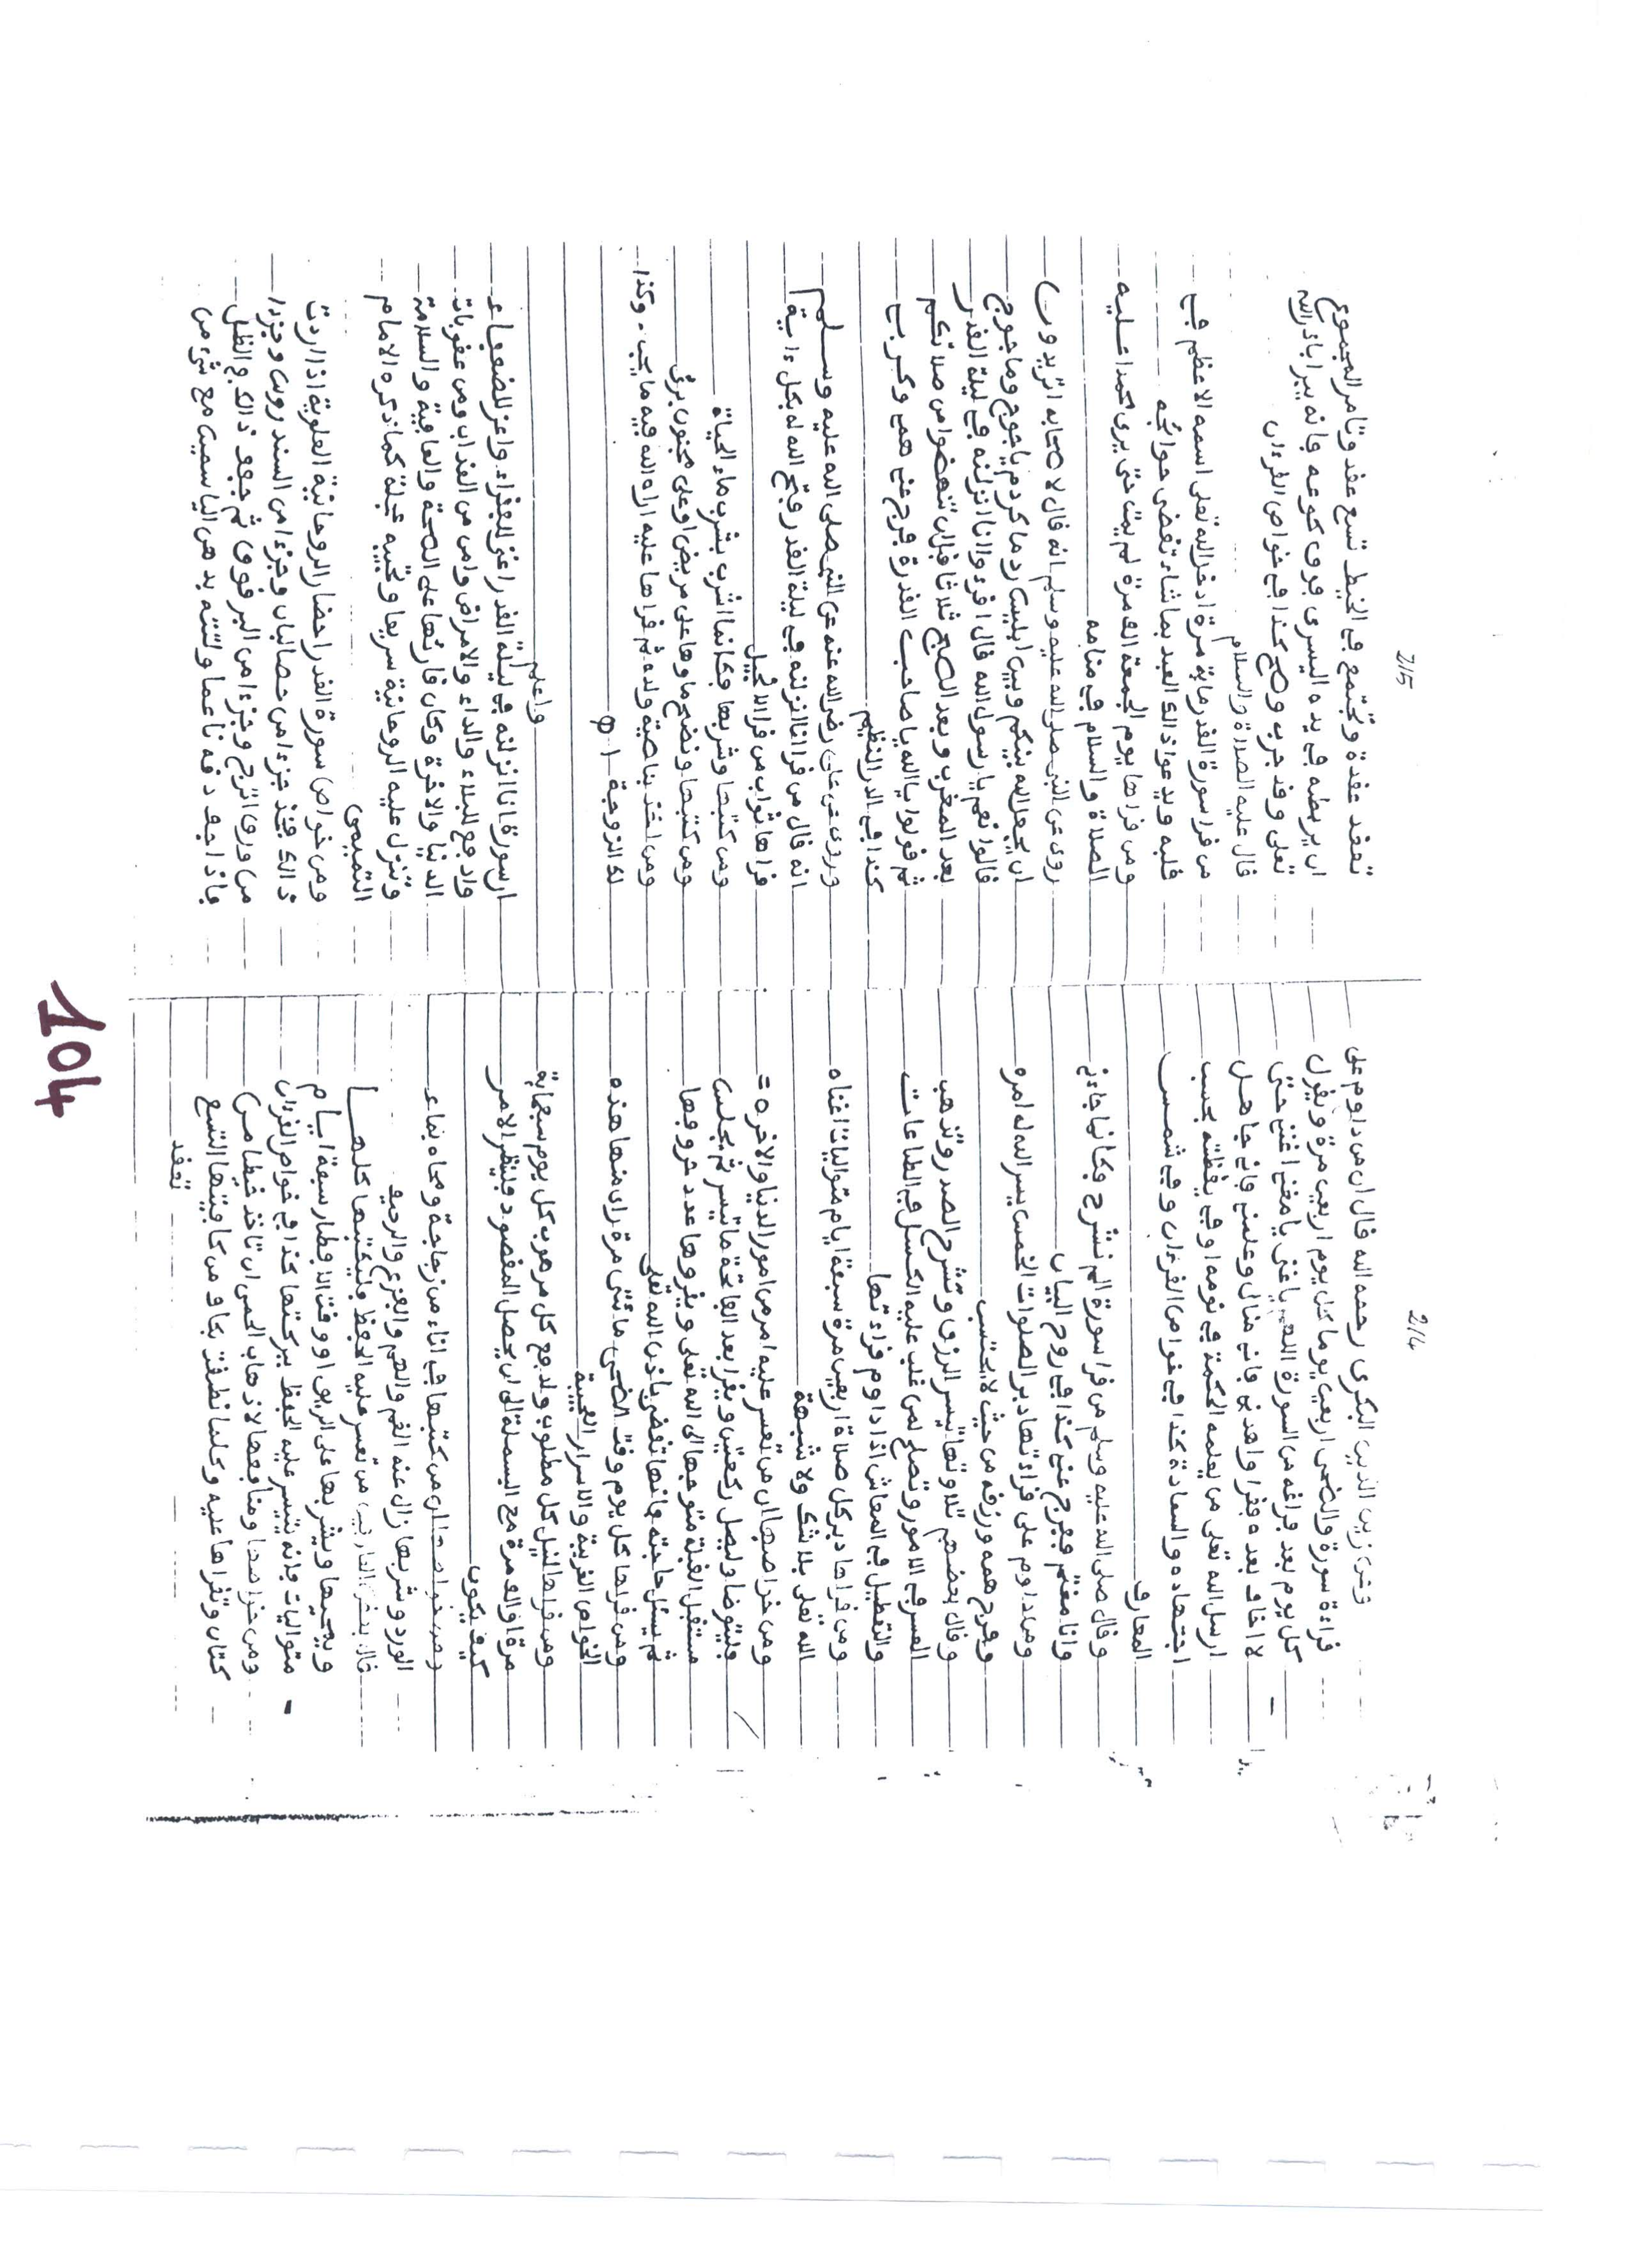 214
وعن زين الدين البكرى رحمه الله فال ان من داوم على
فراءة سورة والضحى اربعين يوما كل يوم اربعين مرة ويفول
كل يوم بعد فراغه من السورة اللهم ياغني يا مغني اغنني غنى
لا اخاف بعده ففرا واهدني فاني ضال وعلمني فاني جاهل
ارسل الله تعلى من يعلمه الحكمة في نومه او في يفظته بحسب
اجتهاده والسعادة كذا في خواص الفرءان وفي شمس
المعارف
وفال صلى الله عليه وسلم من فرا سورة الم نشرح فكانما جاءني
وانا مغتم ففرج عني كذا في روح البيان
ومن داوم على فراءتها دبر الصلوات الخمس يسر الله له امره
وفرج همه ورزفه من حيث لا يحتسب
وفال بعضهم تلاوتها تيسر الرزق وتشرح الصدر وتذهب
العسر في الامور وتصلح لمن غلب عليه الكسل في الطاعات
والتعطيل في المعاش اذا داوم فراءتها
ومن فراها دبر كل صلاة اربعين مرة سبعة ايام متواليات اغناه
الله تعلى بلا شك ولا شبهة
ومن خواصها ان من تعسر عليه امر من امور الدنيا والاخرة =
فليتوضا وليصل ركعتين ويفرا بعد الفاتحة ما تيسر ثم يجلس
مستفبل الفبلة متوجها الى الله تعلى ويفروها عدد حروفها
ثم يسئل حاجته فانها تفضى باذن الله تعلى
ومن فراها كل يوم وفت الضحى مائتى مرة راى منها هذه
الخواص الغريبة والاسرار العجيبة
ومن فراها لنيل كل مطلوب ولدفع كل مرهوب كل يوم سبعماية
مرة او الف مرة مع البسملة الى ان يحصل المفصود فلينظر الامر
كيف يكون
ومن خواصها ان من كتبها في اناء من زجاجة ومحاه بماء
الورد وشربها زال عنه الغم والهم والفزع والرجيف
فال بعض العارفين من تعسر عليه الحفظ فليكتبها كلها
ويمحيها ويشربها على الريق او وفت الافطار سبعة ايام
متواليات فانه يتيسر عليه الحفظ ببركتها كذا في خواص الفرءان
ومن خواصها ومنافعها لاذهاب الحمى ان تاخذ خيطا من
كتان وتفرا عليه وكلما نطفت بكاف من كافيتها التسع
تعفد
215
تعفد عفدة وتجتمع في الخيط تسع عفد وتامر المحموم
ان يربطه في يده اليسرى فوق كوعه فانه يبرا باذن الله
تعلى وفد جرب وصح كذا في خواص الفرءان
فال عليه الصلاة والسلام
من فرا سورة الفدر ماية مرة ادخل الله تعلى اسمه الاعظم في
فلبه ويدعوا ذلك العبد بما شاء تفضى حوائجه
ومن فراها يوم الجمعة الف مرة لم يمت حتى يرى محمدا عليه
الصلاة والسلام في منامه
روى عن النبى صلى الله عليه وسلم انه فال لاصحابه اتريدون
ان يجعل الله بينكم وبين ابليس ردما كردم ياجوج وماجوج
فالوا نعم يا رسول الله فال افرءوا انا انزلنه في ليلة الفدر
بعد المغرب وبعد الصبح ثلاثا فبل ان تنهضوا من صلاتكم
ثم فولوا يا الله يا صاحب الفدرة فرج عني همي وكربي
كذا في الدر النظيم
وروى عن على رضى الله عنه عن النبى صلى الله عليه وسلم
انه فال من فرا انا انزلنه في ليلة الفدر فتح الله له بكل ءاية
فراها ثواب من فرا الانجيل
ومن كتبها وشربها فكانما شرب بشرب ماء الحياة
ومن كتبها ونضح ماءها على مريض او على مجنون برئ
ومن اخذ بناصية ولده ثم فراها عليه اراه الله فيه ما يحب - وكذا
لك الزوجة اﻫ
واعلم
ان سورة انا انزلنه في ليلة الفدر اغنى للففراء واعز للضعفاء
وادفع للبلاء والداء والامراض وامن من العذاب ومن عفوبات
الدنيا والاخرة وكان فارئها على الصحة والعافية والسلامة
وتنزل عليه الروحانية سريعا وتجيبه عجلة كما ذكره الامام
التميمى
ومن خواص سورة الفدر احضار الروحانية العلوية اذا اردت
ذالك فخذ جزءا من حصا لبان وجزءا من السندروس وجزءا
من ورق الترنج وجزءا من البرفوق ثم جفف ذالك في الظل
فاذا جف دفه ناعما ولته بدهن الياسمين مع شىء من
104